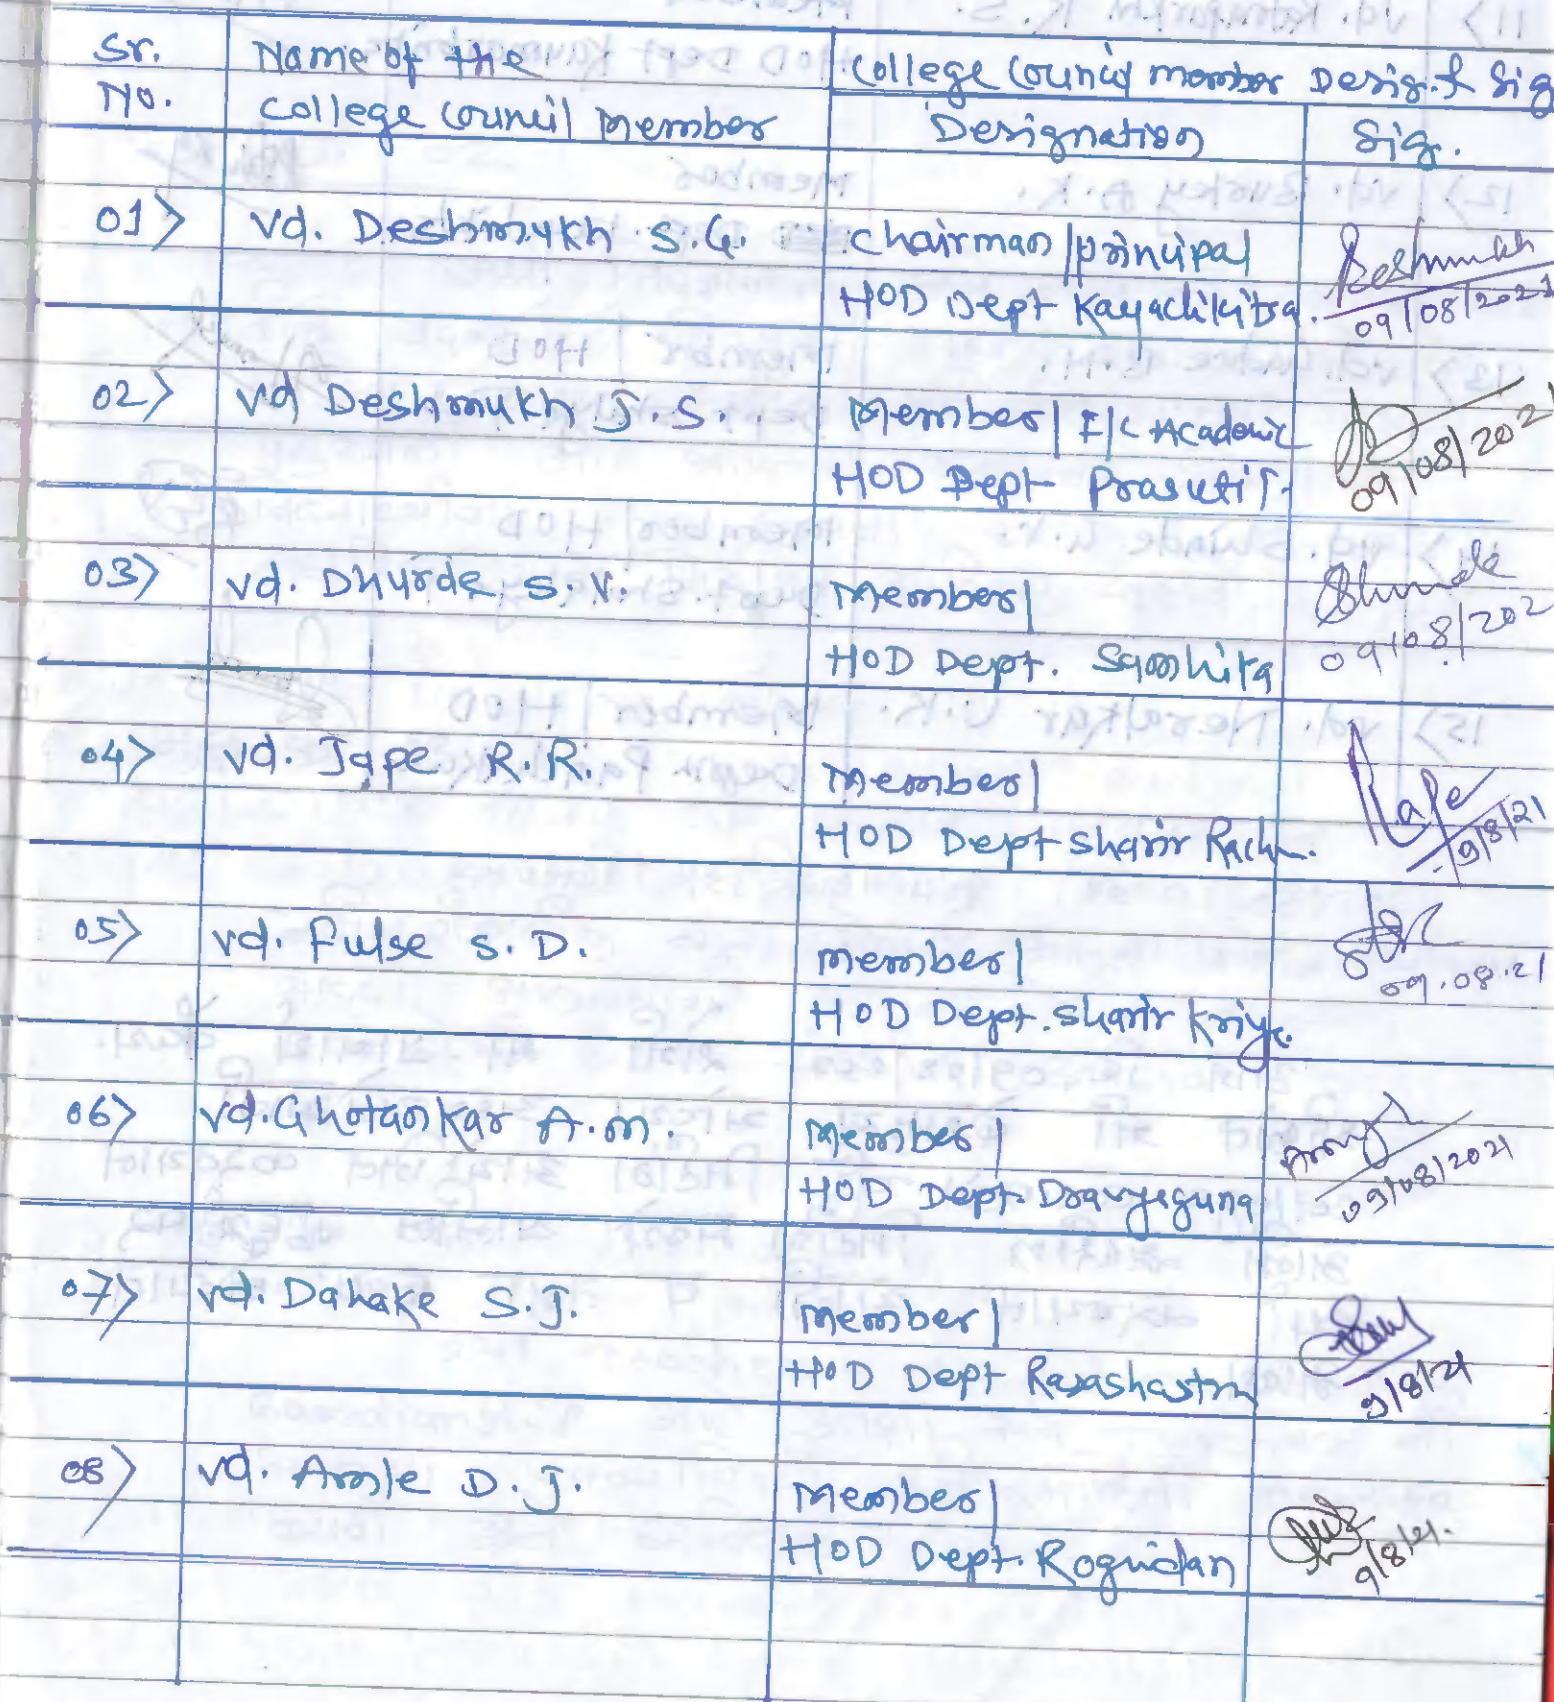 Sr. Name of the College Council member Desig. & Sig
No. College Council Member Designation Sig.
01> Vd. Deshmukh S.G. Chairman/principal Deshmukh
HOD Dept Kayachikitsa. 09/08/2021
02> Vd Deshmukh J.S. Member/ I/C Academic
HOD Dept PrasutiT. 09/08/202
03> Vd. Dhurde S.V. Member/
HOD Dept. Samhita 09/08/202
04> Vd. Jape R.R. Member/
HOD Dept Sharir Rach. 9/8/21
05> Vd. Fulse S.D. Member/
HOD Dept. Sharir Kriya. 09.08.21
06> Vd. Ghotankar A.M. Member/
HOD Dept. Dravyaguna 09/08/2021
07> Vd. Dahake S.J. Member/
HOD Dept Rasashastra 9/8/21
08> Vd. Amle D.J. Member/
HOD Dept. Rognidan 9/8/21.